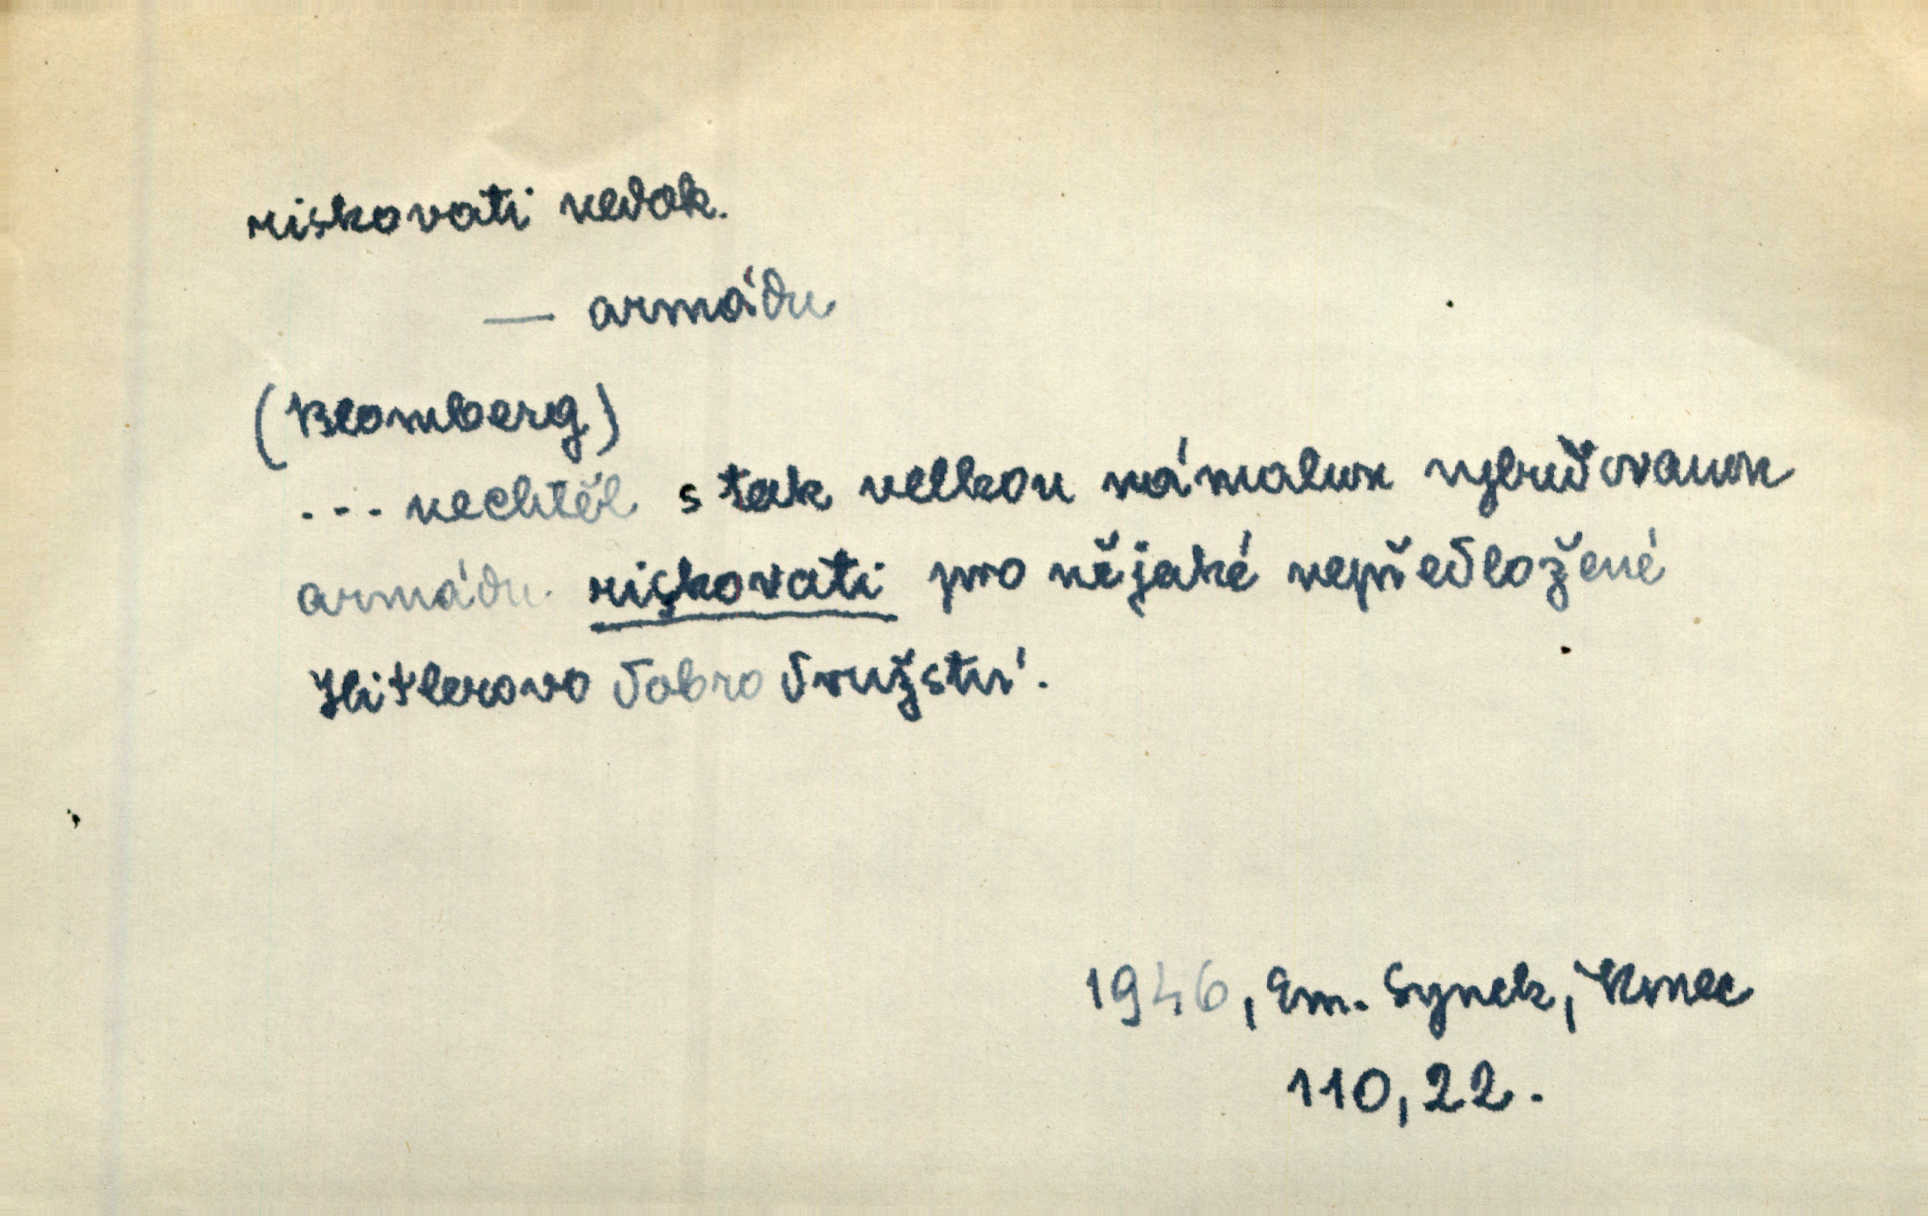 riskovati nedok.
— armádu
(Blomberg)
... nechtěl s tak velkou námahou vybudovanou
armádu riskovati pro nějaké nepředložené
Hitlerovo dobrodružství.
1946, Em. Synek,
110, 22.